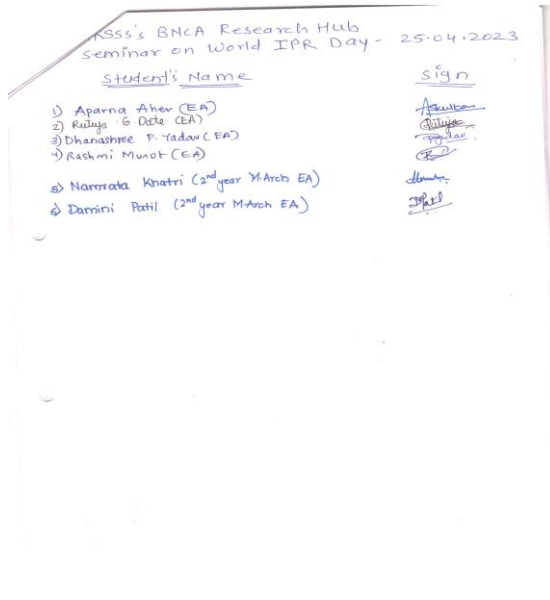 KSSS's BNCA Research Hub
Seminar on World IPR Day - 25.04.2023
Student's Name Sign
1) Aparna Aher (EA)
2) Rutuja G Date (EA) Rutuja
3) Dhanashree P. Yadav (EA)
4) Rashmi Munot (EA)
5) Namrata Khatri (2nd year M.Arch EA)
6) Damini Patil (2nd year M.Arch EA) DPatil